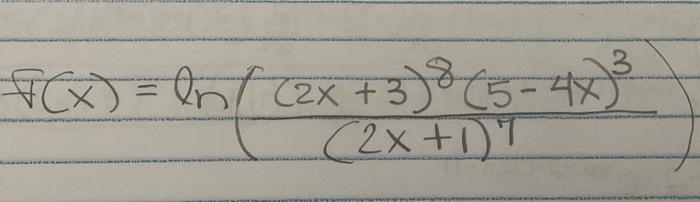 f(x) = ln( (2x+3)^8 (5-4x)^3 / (2x+1)^7 )